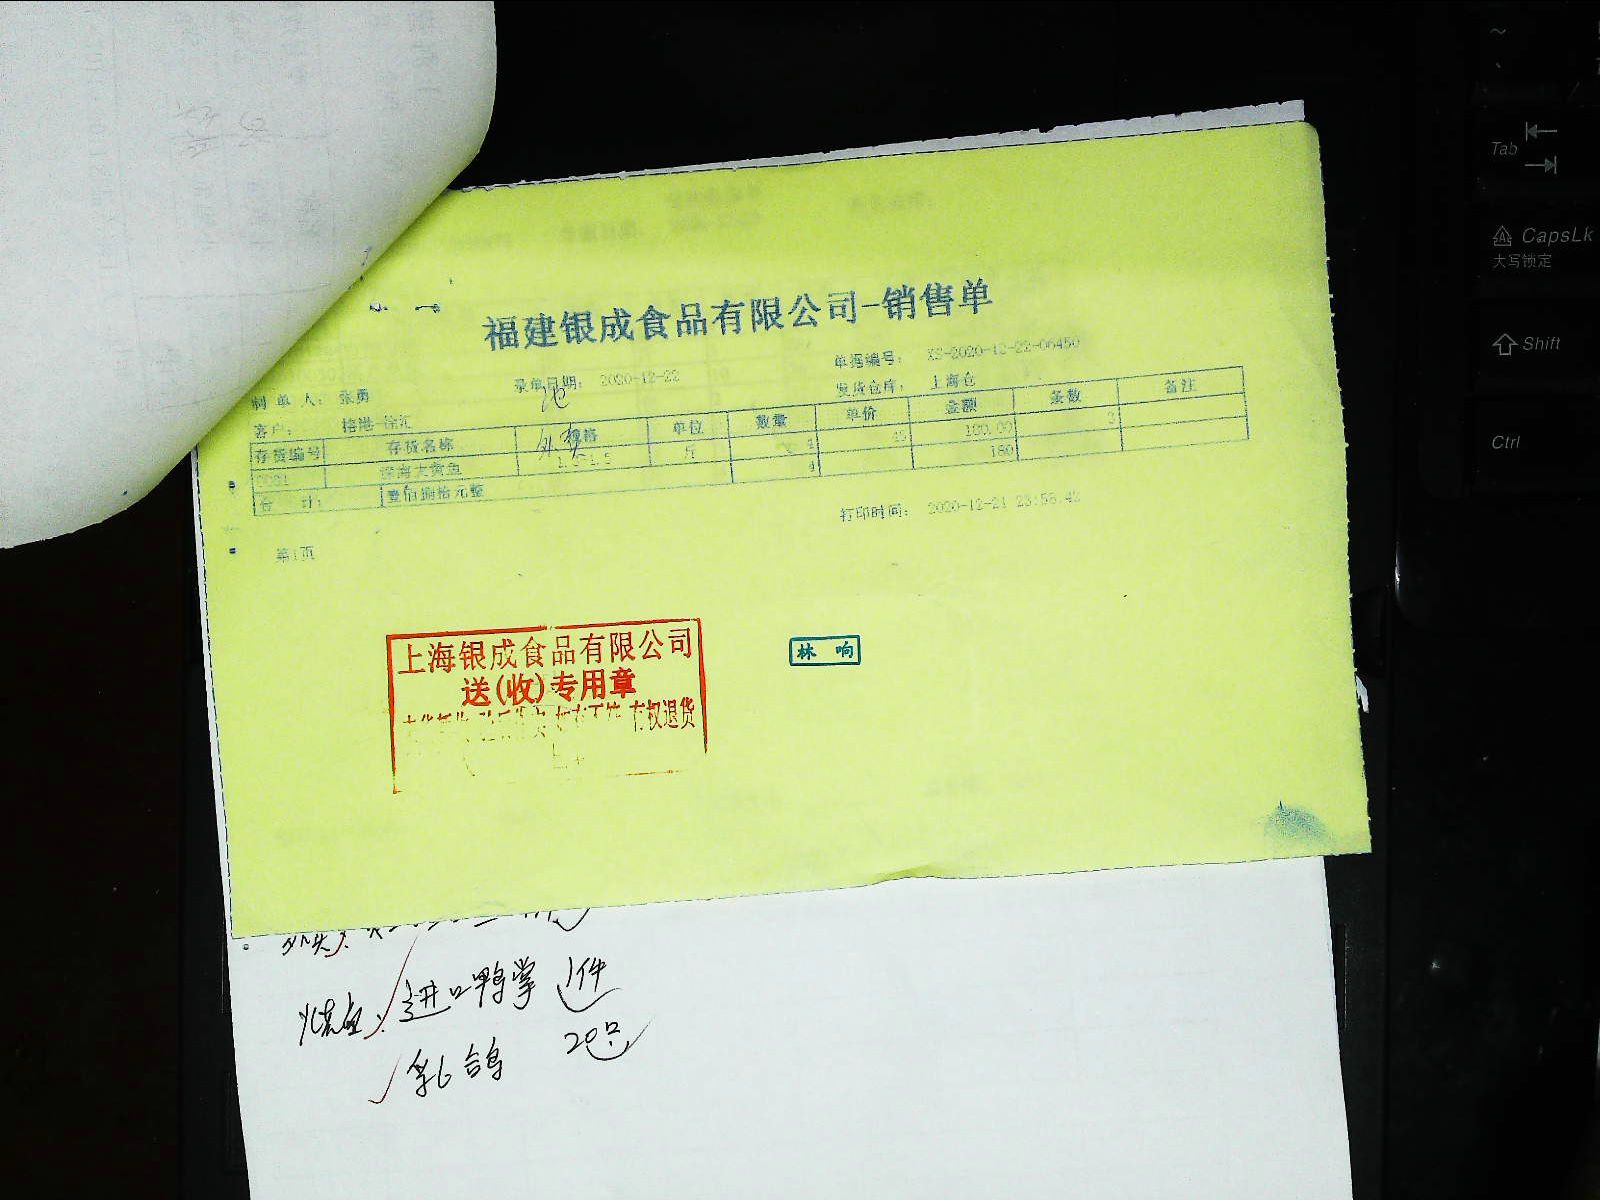 福建银成食品有限公司-销售单
单据编号： XS-2020-12-22-06450
录单日期： 2020-12-22
发货仓库： 上海仓
制 单 人： 张勇
客户： 榕港-徐汇
存货编号 存货名称 规格 单位 数量 单价 金额 条数 备注
深海大黄鱼 1.0-1.5 斤 4 45 180.00 3
合 计： 壹佰捌拾元整 4 180
打印时间： 2020-12-21 23:58:42
第1页
上海银成食品有限公司
送(收)专用章
有权退货
林 响
进口鸭掌 1件
乳鸽 20只
Tab
CapsLk
大写锁定
Shift
Ctrl